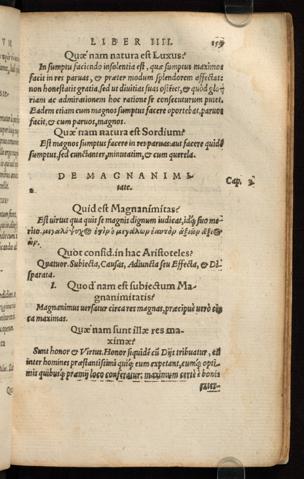 LIBER IIII. 159
Quænam natura est Luxus?
In sumptu faciendo insolentia est, quæ sumptus maximos
facit in res paruas, & præter modum splendorem affectat:
non honestatis gratia, sed ut diuitias suas ostẽtet, & quòd glo
riam ac admirationem hoc ratione se consecuturum putet.
Eadem etiam cum magnos sumptus facere oportebat, paruos
facit, & cum paruos, magnos.
Quæ nam natura est Sordium?
Est magnos sumptus facere in res paruas: aut facere quidẽ
sumptus, sed cunctanter, minutatim, & cum querela.
DE MAGNANIMI
tate. Cap. 3.
Quid est Magnanimitas?
Est uirtus qua quis se magnis dignum iudicat, idq́; suo me
rito. μεγαλόψυχος ὁ μεγάλων ἑαυτὸν ἀξιῶν ἄξιος
ὤν.
Quot consid. in hac Aristoteles?
Quatuor. Subiecta, Causas, Adiuncta seu Effecta, & Di
sparata.
1. Quod nam est subiectum Ma
gnanimitatis?
Magnanimus versatur circa res magnas, præcipuè verò cir
ca maximas.
Quæ nam sunt illæ res ma
ximæ?
Sunt honor & Virtus. Honor siquidẽ cũ Dijs tribuatur, et
inter homines præstantissimi quiq; eum expetant, eumq́; opti
mis quibusq́; præmij loco conferatur: maximum certè è bonis